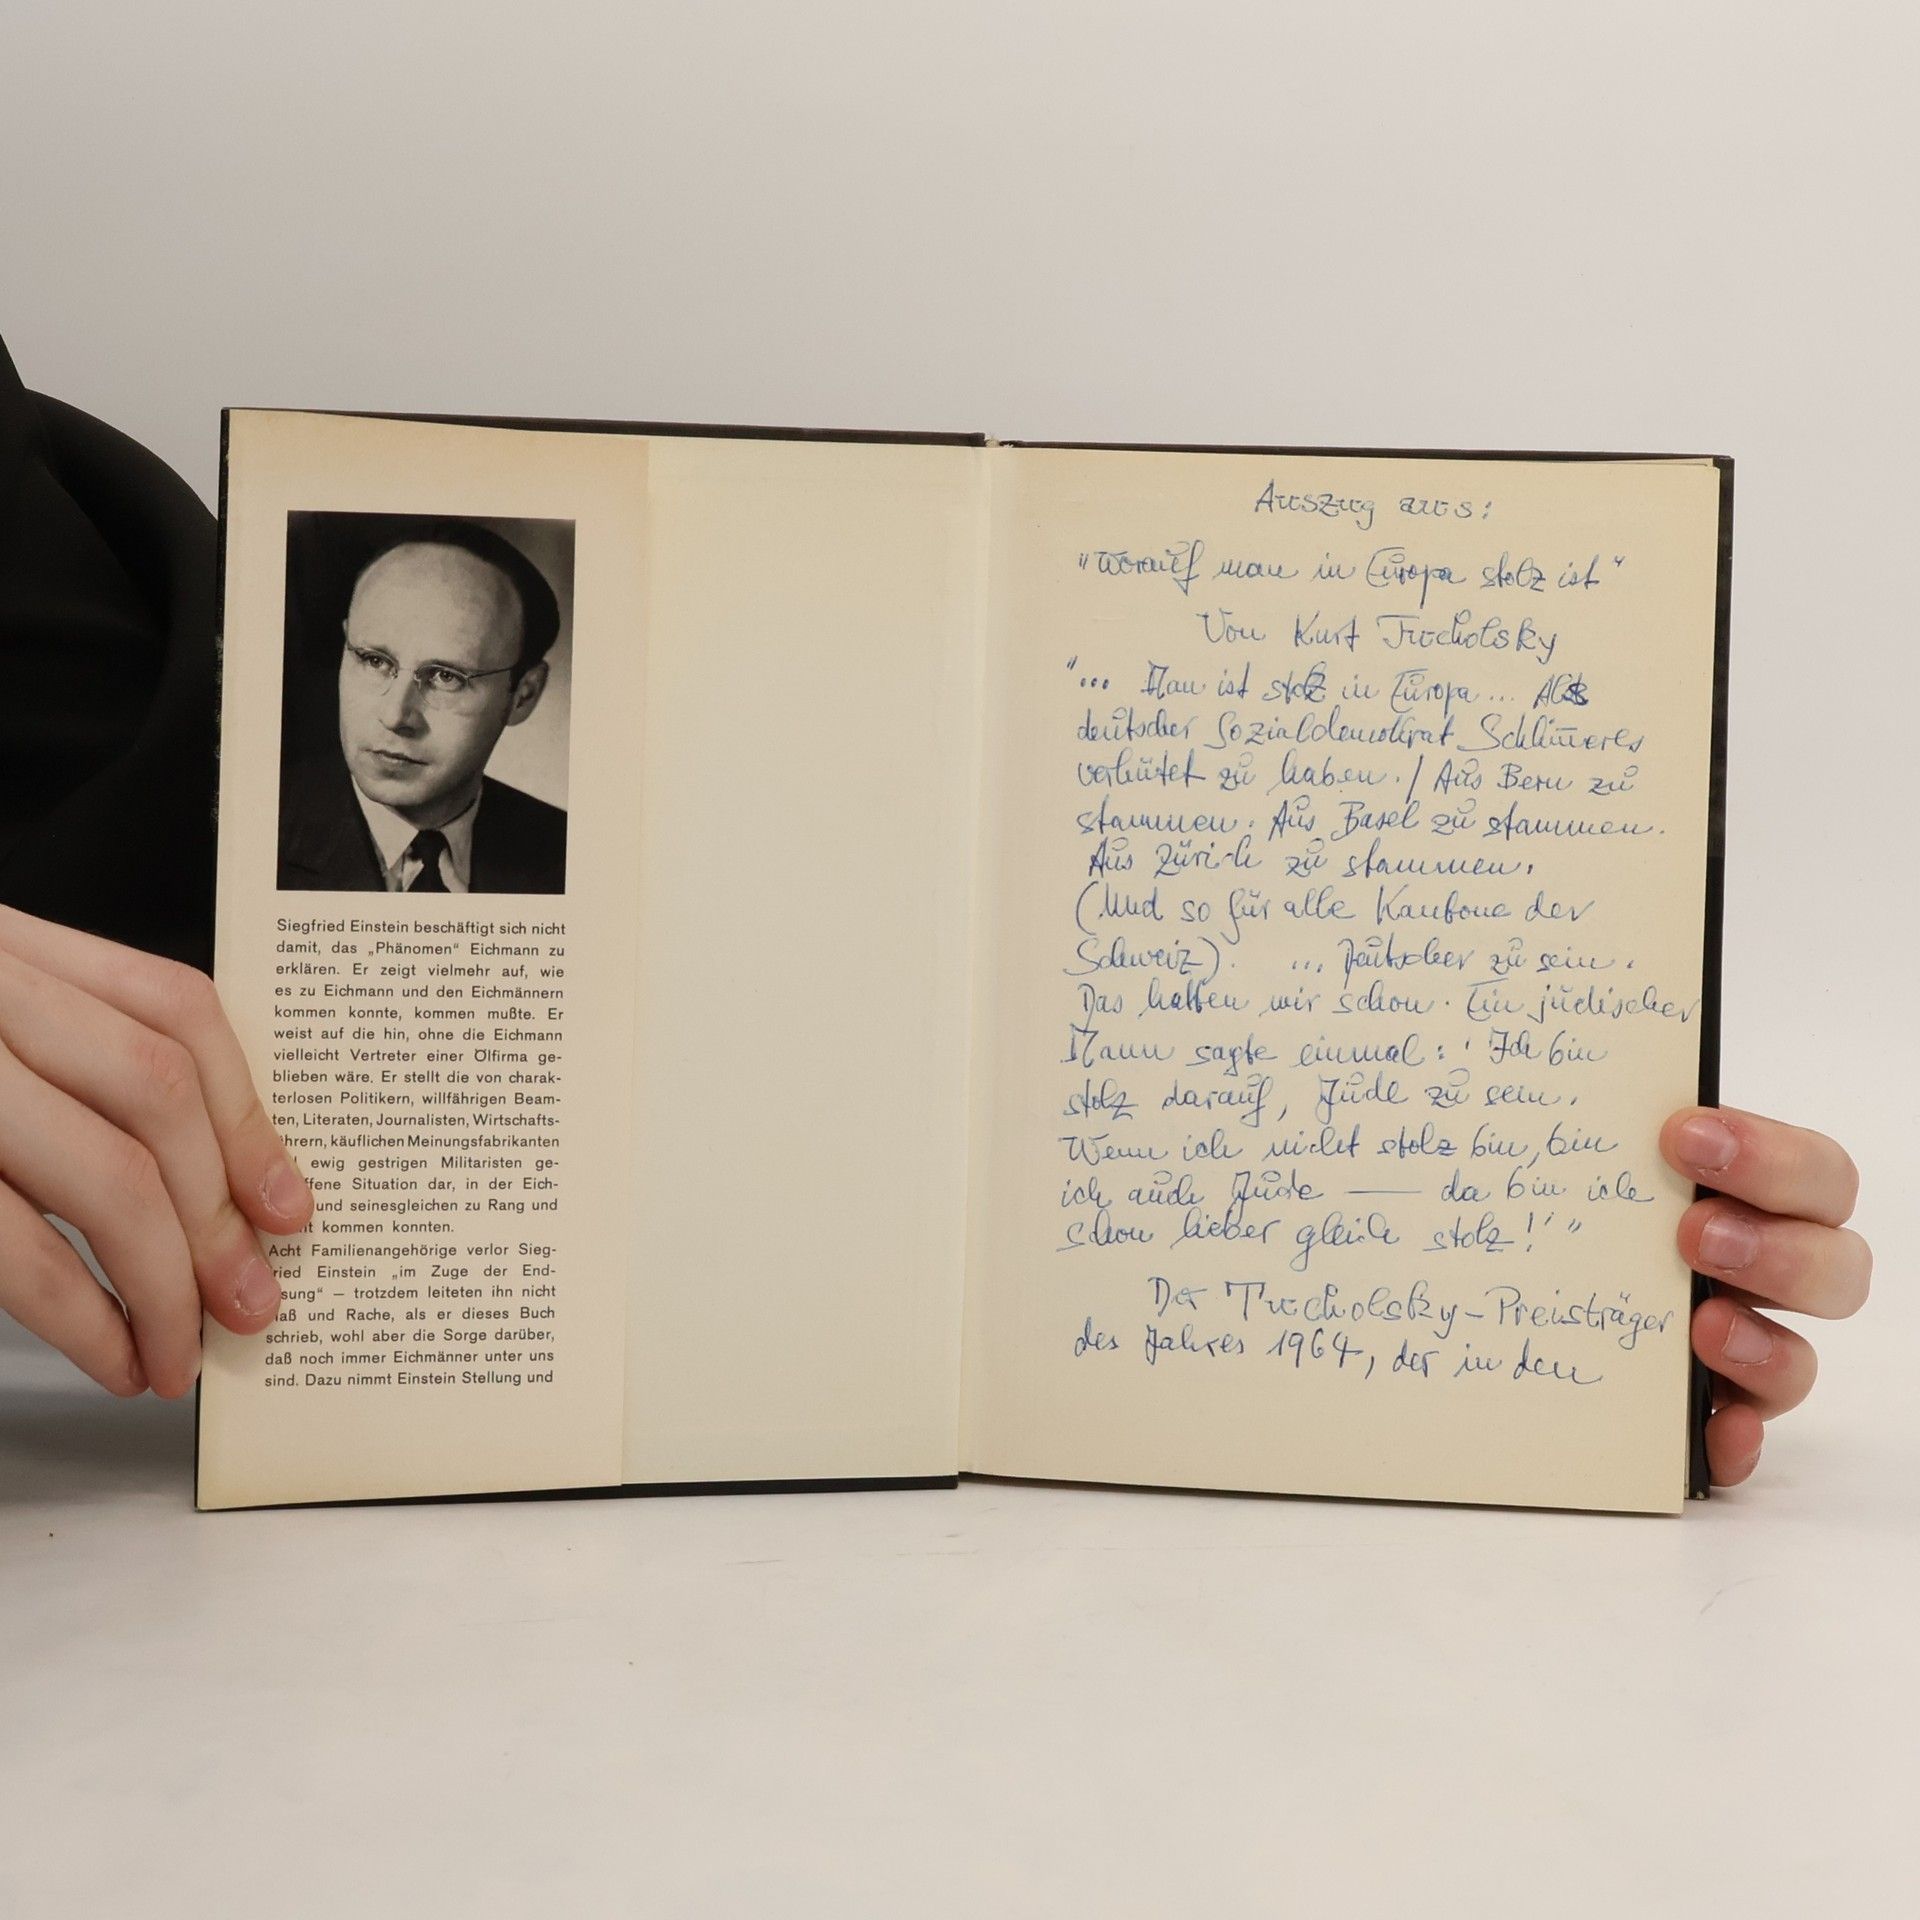 Siegfried Einstein beschäftigt sich nicht
damit, das „Phänomen“ Eichmann zu
erklären. Er zeigt vielmehr auf, wie
es zu Eichmann und den Eichmännern
kommen konnte, kommen mußte. Er
weist auf die hin, ohne die Eichmann
vielleicht Vertreter einer Ölfirma ge-
blieben wäre. Er stellt die von charak-
terlosen Politikern, willfährigen Beam-
ten, Literaten, Journalisten, Wirtschafts-
hrern, käuflichen Meinungsfabrikanten
ewig gestrigen Militaristen ge-
ffene Situation dar, in der Eich-
und seinesgleichen zu Rang und
t kommen konnten.
Acht Familienangehörige verlor Sieg-
ried Einstein „im Zuge der End-
sung“ — trotzdem leiteten ihn nicht
aß und Rache, als er dieses Buch
schrieb, wohl aber die Sorge darüber,
daß noch immer Eichmänner unter uns
sind. Dazu nimmt Einstein Stellung und
Auszug aus:
"Worauf man in Europa stolz ist"
Von Kurt Tucholsky
"... Man ist stolz in Europa... Als
deutscher Sozialdemokrat Schlimmeres
verhütet zu haben. / Aus Bern zu
stammen. Aus Basel zu stammen.
Aus Zürich zu stammen.
(Und so für alle Kantone der
Schweiz). ... Deutscher zu sein.
Das hatten wir schon. Ein jüdischer
Mann sagte einmal: 'Ich bin
stolz darauf, Jude zu sein.
Wenn ich nicht stolz bin, bin
ich auch Jude — da bin ich
schon lieber gleich stolz!' "
Der Tucholsky-Preisträger
des Jahres 1964, der in den